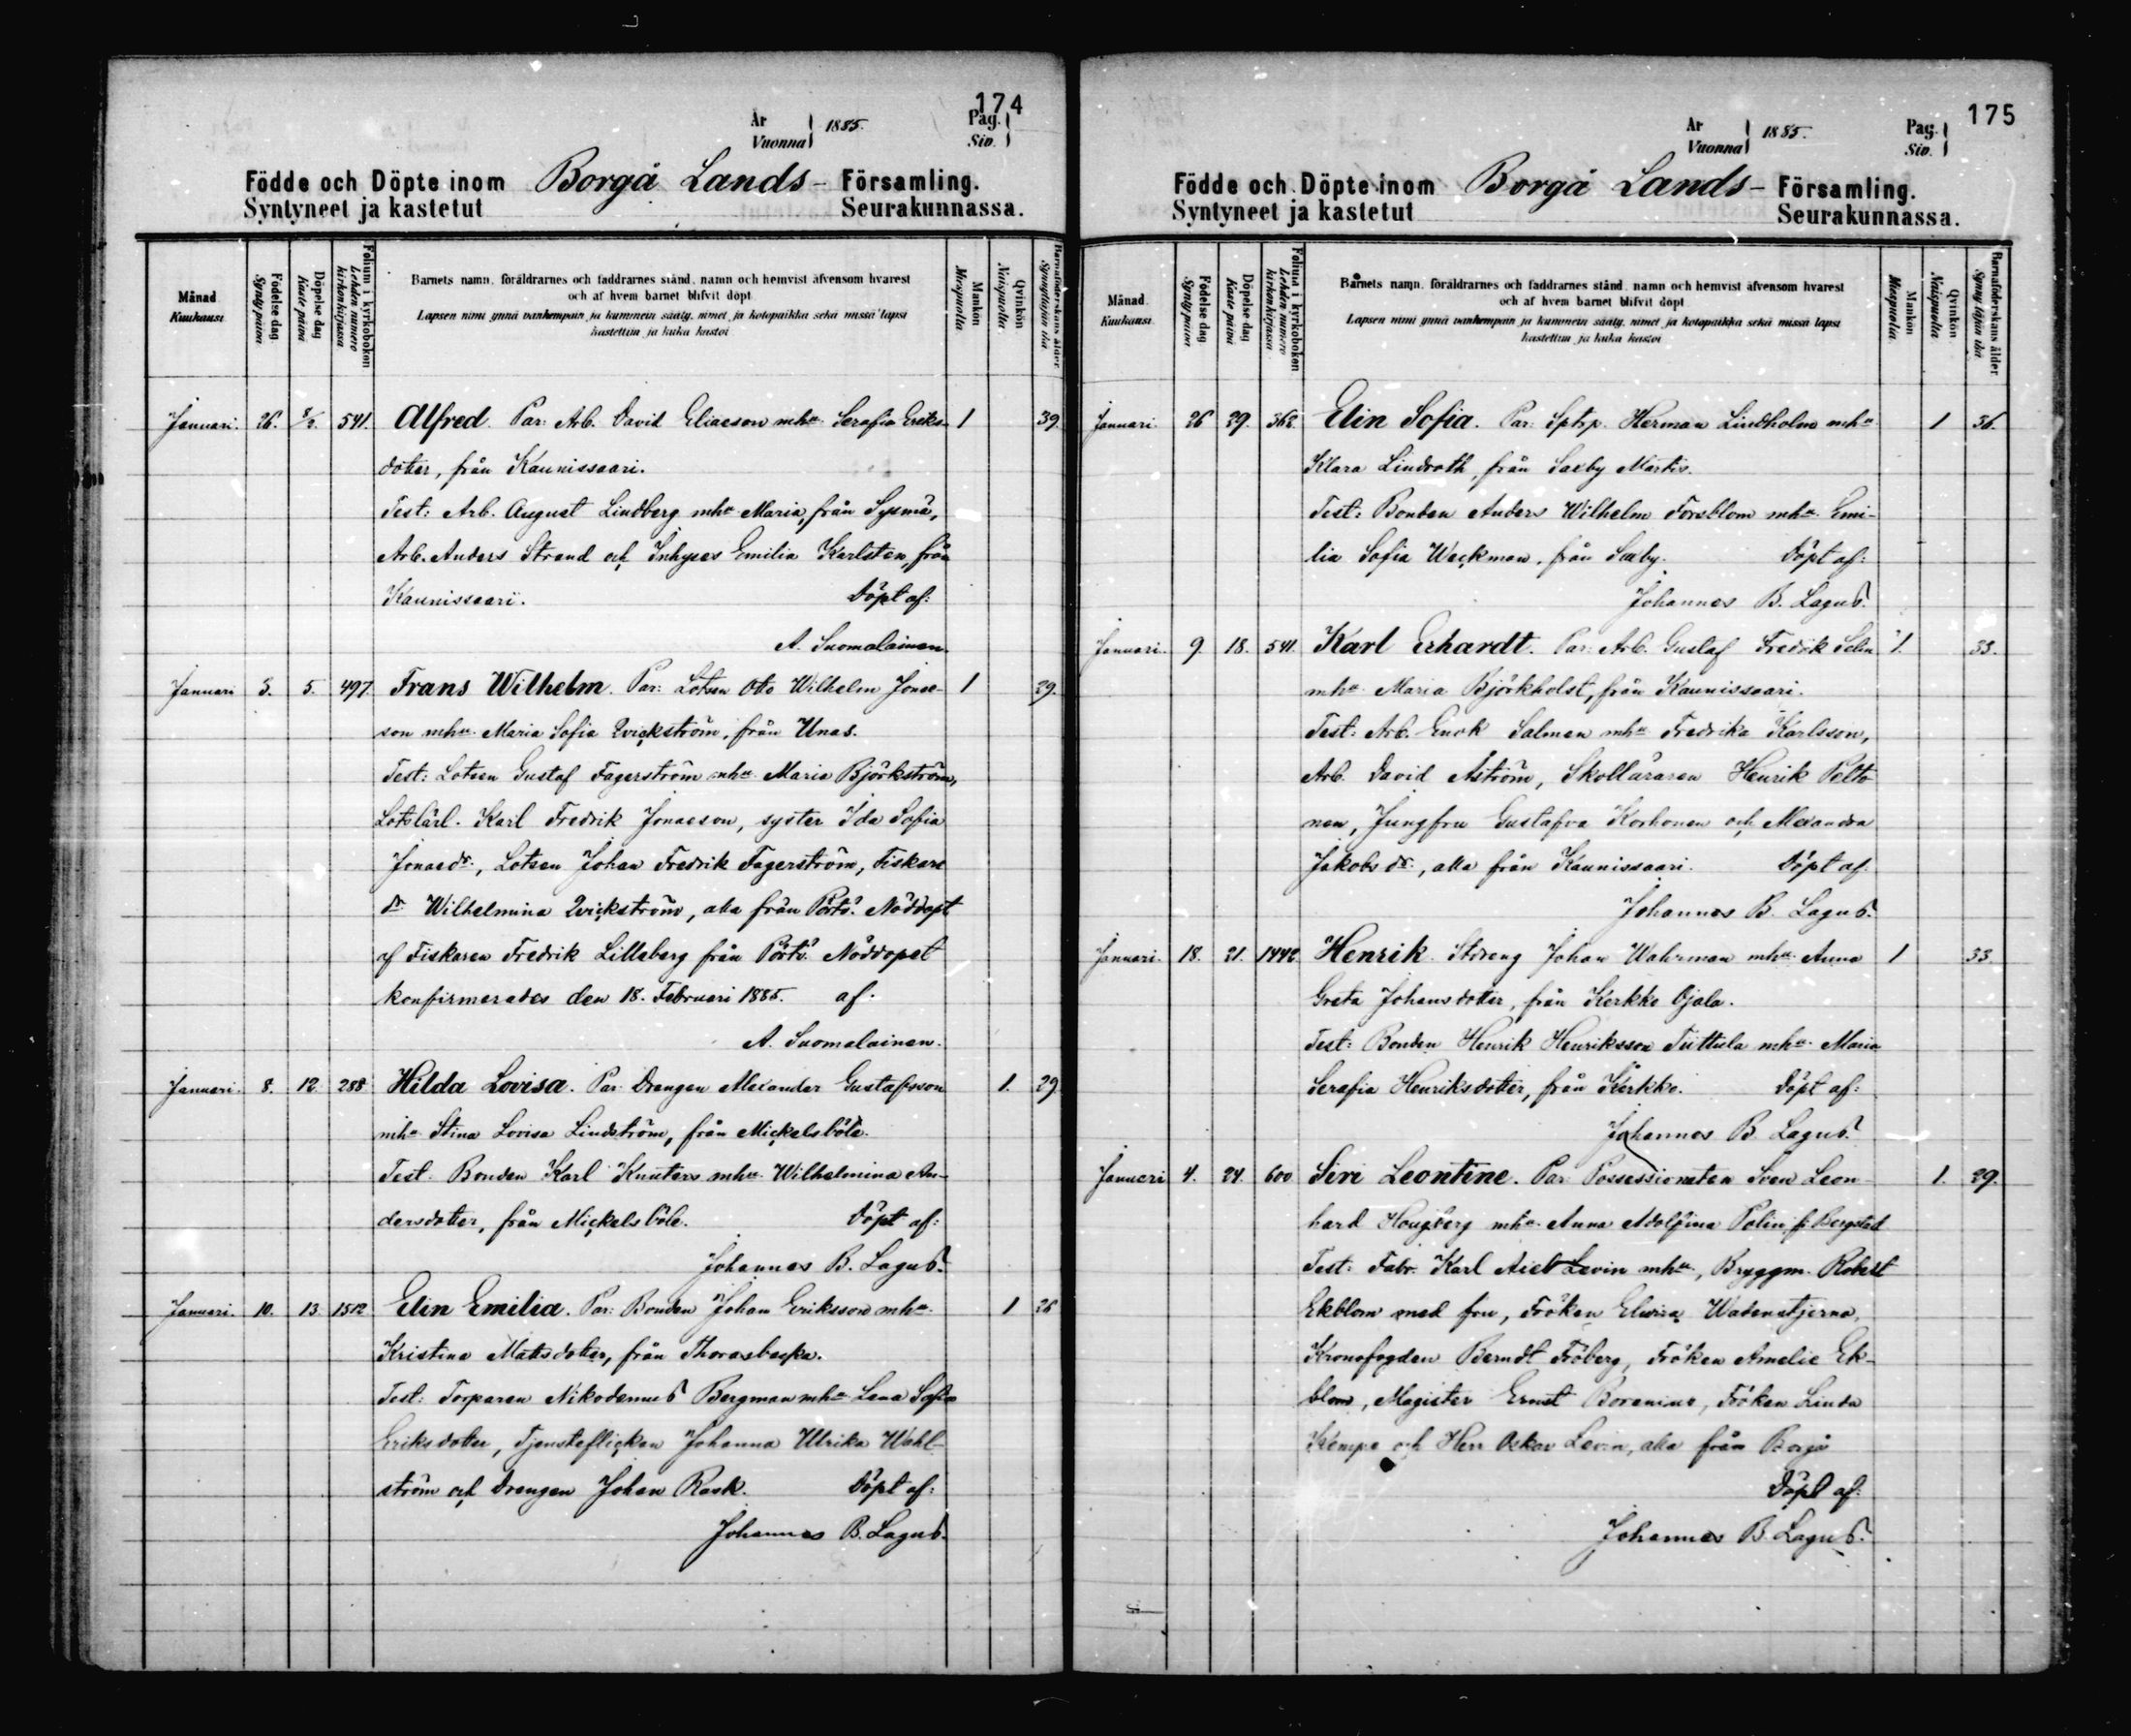 174
År
Vuonna
1885.
Pag.
Siv.
Födde och Döpte inom Borgå Lands- Församling.
Syntyneet ja kastetut Seurakunnassa.
Månad
Kuukausi
Födelse dag
Synty päivä
Döpelse dag
Kaste päivä
Folium i kyrkoboken
Lehden numero kirkonkirjassa
Barnets namn, föräldrarnes och faddrarnes stånd, namn och hemvist äfvensom hvarest
och af hvem barnet blifvit döpt
Lapsen nimi ynnä vanhempain ja kummein sääty, nimet ja kotopaikka sekä missä lapsi
kastettiin ja kuka kastoi
Mankön
Miespuolia
Qvinkön
Naispuolia
Barnaföderskans ålder
Synnyttäjän ikä
Januari. 26. 8/2. 541. Alfred. Par: Arb. David Eliaeson mhu Serafia Eriks- 1 39.
dotter, från Kaunissaari.
Test: Arb. August Lindberg mhu Maria, från Sysmä,
Arb. Anders Strand och Inhyses Emilia Karlsten, från
Kaunissaari. Döpt af:
A. Suomalainen.
Januari 3. 5. 497. Frans Wilhelm. Par: Lotsen Otto Wilhelm Jonae- 1 29.
son mhu Maria Sofia Qvickström, från Unas.
Test: Lotsen Gustaf Fagerström mhu Maria Björkström,
Lotslärl. Karl Fredrik Jonaeson, syster Ida Sofia
Jonaedr., Lotsen Johan Fredrik Fagerström, Fiskare
dr Wilhelmina Qvickström, alla från Pörtö. Nöddöpt
af Fiskaren Fredrik Lilleberg från Pörtö. Nöddopet
konfirmerades den 18. Februari 1885. af:
A. Suomalainen.
Januari. 8. 12. 288 Hilda Lovisa. Par: Drengen Alexander Gustafsson 1. 29.
mhu Stina Lovisa Lindström, från Mickelsböle.
Test. Bonden Karl Knuters mhu Wilhelmina An-
dersdotter, från Mickelsböle. Döpt af:
Johannes B. Lagus.
Januari. 10. 13. 1512. Elin Emilia. Par: Bonden Johan Eriksson mhu 1 26
Kristina Mattsdotter, från Thorasbacka.
Test: Torparen Nikodemus Bergman mhu Lena Sofia
Eriksdotter, Tjensteflickan Johanna Ulrika Wahl-
ström och Drengen Johan Rask. Döpt af:
Johannes B. Lagus.
175
År
Vuonna
1885.
Pag.
Siv.
Födde och Döpte inom Borgå Lands- Församling.
Syntyneet ja kastetut Seurakunnassa.
Månad
Kuukausi
Födelse dag
Synty päivä
Döpelse dag
Kaste päivä
Folium i kyrkoboken
Lehden numero kirkonkirjassa
Barnets namn, föräldrarnes och faddrarnes stånd, namn och hemvist äfvensom hvarest
och af hvem barnet blifvit döpt
Lapsen nimi ynnä vanhempain ja kummein sääty, nimet ja kotopaikka sekä missä lapsi
kastettiin ja kuka kastoi
Mankön
Miespuolia
Qvinkön
Naispuolia
Barnaföderskans ålder
Synnyttäjän ikä
Januari. 26 29. 368. Elin Sofia. Par: Sptrp. Herman Lindholm mhu 1 36.
Klara Lindroth, från Saxby Martis.
Test: Bonden Anders Wilhelm Forsblom mhu Emi-
lia Sofia Weckman, från Saxby. Döpt af:
Johannes B. Lagus.
Januari. 9. 18. 541. Karl Erhardt. Par: Arb. Gustaf Fredrik Selin 1. 33.
mhu Maria Björkholst, från Kaunissaari.
Test: Arb. Enok Salmen mhu Fredrika Karlsson,
Arb. David Åström, Skolläraren Henrik Pelto-
nen, Jungfru Gustafva Korhonen och Alexandra
Jakobs dr., alla från Kaunissaari. Döpt af.
Johannes B. Lagus.
Januari. 18. 21. 1442 Henrik. Stdreng Johan Wahrman mhu Anna 1 33.
Greta Johansdotter, från Kerkko Ojala.
Test: Bonden Henrik Henriksson Tuttula mhu Maria
Serafia Henriksdotter, från Kerkko. Döpt af:
Johannes B. Lagus.
Januari 4. 24. 600 Siri Leontine. Par: Possessionaten Sven Leon- 1. 29.
hard Hougberg mhu Anna Adolfina Polin, fr. Bergsted
Test: Fabr. Karl Levin mhu, Bryggm. Robert
Ekblom med fru, Fröken Elwira Wadenstjerna,
Kronofogden Berndt Fröberg, Fröken Amelie Ek-
blom, Magister Ernst Borenius, Fröken Linda
Kempe och Herr Oskar Levin, alla från Borgå
Döpt af:
Johannes B. Lagus.